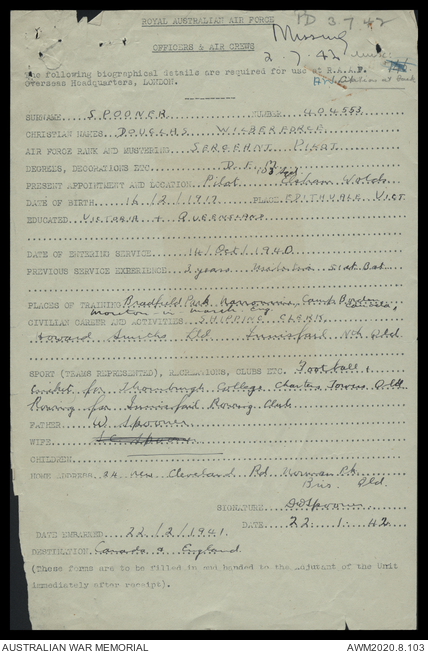 ROYAL AUSTRALIAN AIR FORCE 3 7 42
Missing
OFFICERS & AIR CREWS 2.7.42
The following biographical details are required for use at R.A.A.F.
Overseas Headquarters, LONDON. Citation at back
SURNAME SPOONER NUMBER 404553
CHRISTIAN NAMES DOUGLAS WILBERFORCE
AIR FORCE RANK AND MUSTERING SERGEANT PILOT
DEGREES, DECORATIONS ETC D.F.M.
PRESENT APPOINTMENT AND LOCATION Pilot
DATE OF BIRTH 16/2/1917 PLACE EDITHVALE VICT
EDUCATED VICTORIA + QUEENSLAND
DATE OF ENTERING SERVICE 14/Oct/1940
PREVIOUS SERVICE EXPERIENCE 2 years Militia 51st Bat
PLACES OF TRAINING Bradfield Park Narromine Camp Borden
Moreton in Marsh
CIVILIAN CAREER AND ACTIVITIES SHIPPING CLERK
Howard Smiths Ltd Innisfail Nth Qld
SPORT (TEAMS REPRESENTED), RECREATIONS, CLUBS ETC. Football,
Cricket for Thornburgh College Charters Towers Qld
Rowing for Innisfail Rowing Club
FATHER W. Spooner
WIFE
CHILDREN
HOME ADDRESS 24 New Cleveland Rd Norman Pk
Bris. Qld
SIGNATURE DWSpooner
DATE 22. 1. 42
DATE EMBARKED 22/2/1941.
DESTINATION Canada & England
(These forms are to be filled in and handed to the Adjutant of the Unit
immediately after receipt).
AUSTRALIAN WAR MEMORIAL AWM2020.8.103